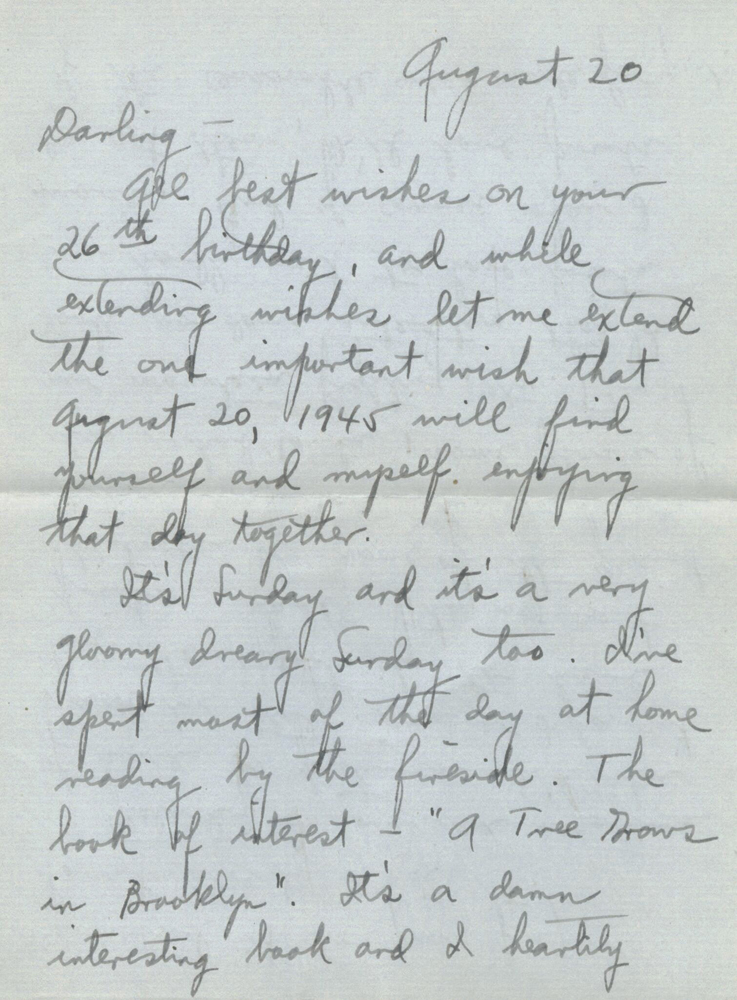 August 20
Darling —
All best wishes on your
26th birthday, and while
extending wishes let me extend
the one important wish that
August 20, 1945 will find
yourself and myself enjoying
that day together.
It's Sunday and it's a very
gloomy dreary Sunday too. I've
spent most of the day at home
reading by the fireside. The
book of interest — "A Tree Grows
in Brooklyn". It's a damn
interesting book and I heartily